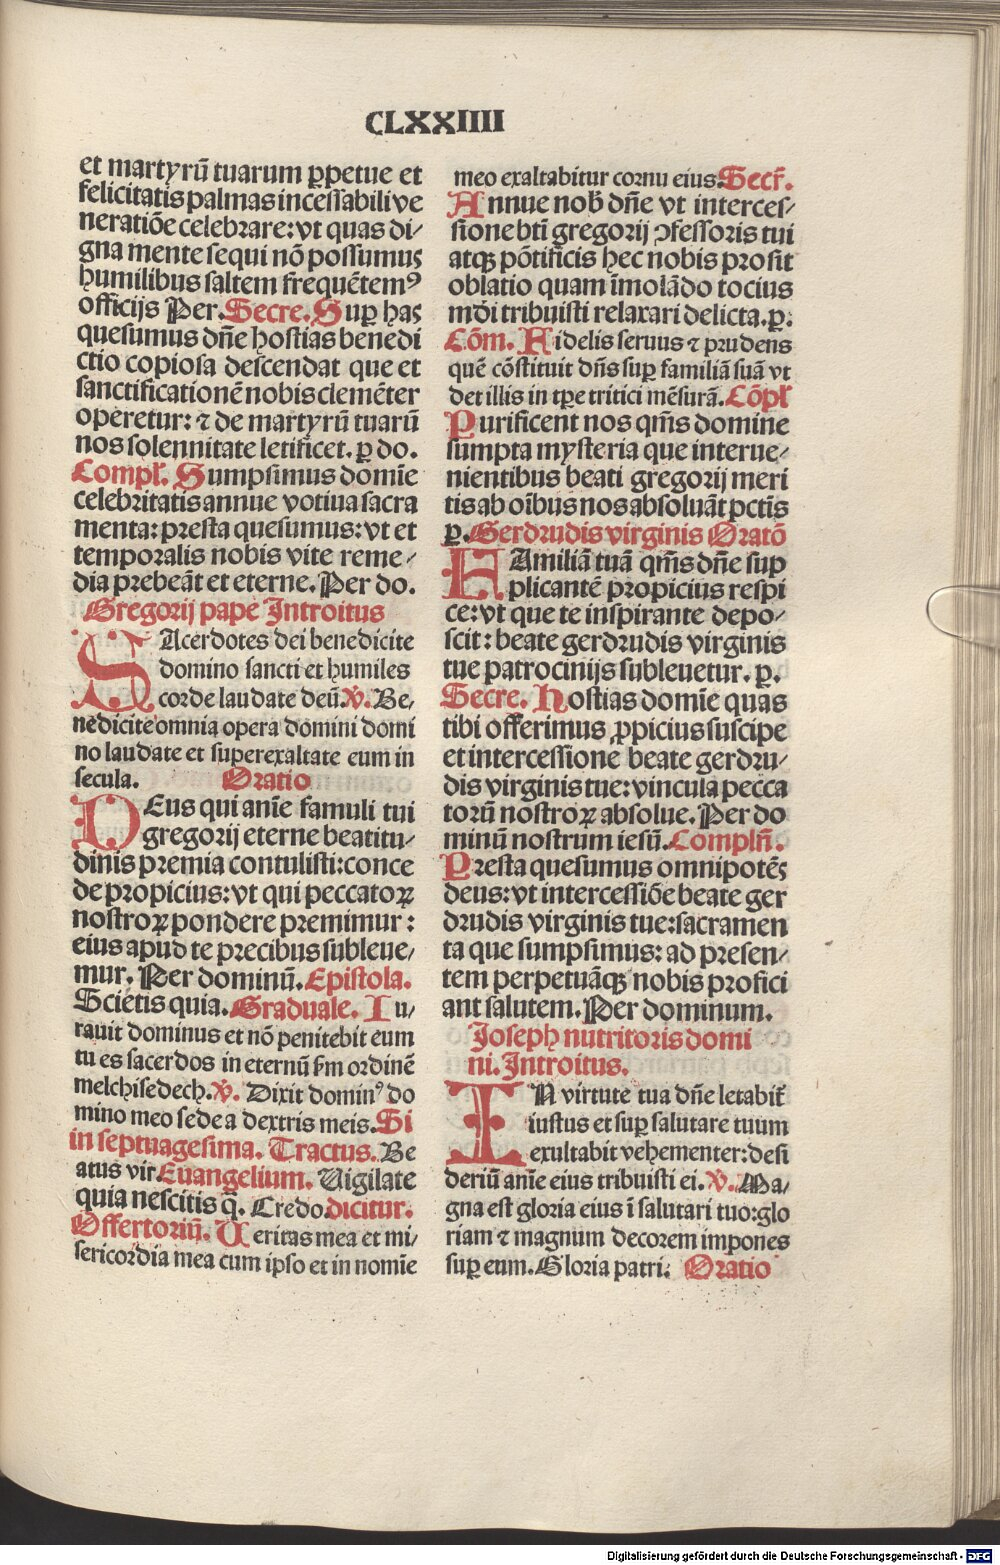 CLXXIIII
et martyrū tuarum ꝑpetue et
felicitatis palmas incessabili ve
neratiōe celebrare: vt quas di⸗
gna mente sequi nō possumus
humilibus saltem frequētemꝰ
officijs Per. Secre. Suꝑ has
quesumus dn̄e hostias benedi
ctio copiosa descendat que et
sanctificationē nobis clemēter
operetur: ⁊ de martyrū tuarū
nos solennitate letificet. ꝑ do.
Compl̄. Sumpsimus domīe
celebritatis annue votiua sacra
menta: presta quesumus: vt et
temporalis nobis vite reme⸗
dia prebeāt et eterne. Per do.
Gregorij pape Introitus
SAcerdotes dei benedicite
domino sancti et humiles
corde laudate deū. ℣. Be⸗
nedicite omnia opera domini domi
no laudate et superexaltate eum in
secula. Oratio
DEus qui anīe famuli tui
gregorij eterne beatitu⸗
dinis premia contulisti: conce
de propicius: vt qui peccatoꝝ
nostroꝝ pondere premimur:
eius apud te precibus subleue⸗
mur. Per dominū. Epistola.
Scietis quia. Graduale. Iu⸗
rauit dominus et nō penitebit eum
tu es sacerdos in eternū ẜm ordinē
melchisedech. ℣. Dixit dominꝰ do
mino meo sede a dextris meis. Si
in septuagesima. Tractus. Be
atus vir. Euangelium. Vigilate
quia nescitis q̄. Credo. dicitur.
Offertoriū. Ueritas mea et mi⸗
sericordia mea cum ipso et in nomīe
meo exaltabitur cornu eius. Secr̄.
Annue nob̄ dn̄e vt interces⸗
sione btī gregorij ꝯfessoris tui
atqꝫ pōtificis hec nobis prosit
oblatio quam īmolādo tocius
mūdi tribuisti relaxari delicta. ꝑ.
Cōm. Fidelis seruus ⁊ prudens
quē cōstituit dn̄s suꝑ familiā suā vt
det illis in tꝑe tritici mēsurā. Cōpl̄
Purificent nos qm̄s domine
sumpta mysteria que interue⸗
nientibus beati gregorij meri
tis ab oībus nos absoluāt pctīs
ꝑ. Gerdrudis virginis Oratō
FAmiliā tuā qm̄s dn̄e sup
plicantē propicius respi
ce: vt que te inspirante depo⸗
scit: beate gerdrudis virginis
tue patrocinijs subleuetur. ꝑ.
Secre. Hostias domīe quas
tibi offerimus ꝓpicius suscipe
et intercessione beate gerdru⸗
dis virginis tue: vincula pecca
torū nostroꝝ absolue. Per do
minū nostrum iesū. Compln̄.
Presta quesumus omnipotēs
deus: vt intercessiōe beate ger
drudis virginis tue: sacramen
ta que sumpsimus: ad presen⸗
tem perpetuāqꝫ nobis profici
ant salutem. Per dominum.
Joseph nutritoris domi
ni. Introitus.
IN virtute tua dn̄e letabit̄
iustus et suꝑ salutare tuum
exultabit vehementer: desi
deriū anīe eius tribuisti ei. ℣. Ma⸗
gna est gloria eius ī salutari tuo: glo
riam ⁊ magnum decorem impones
suꝑ eum. Gloria patri. Oratio
Digitalisierung gefördert durch die Deutsche Forschungsgemeinschaft - DFG